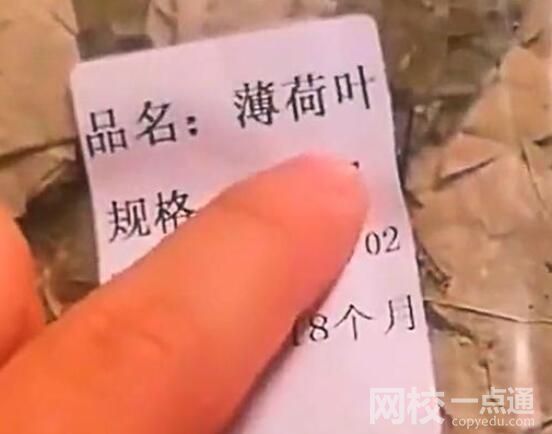 品名：薄荷叶
规格
02
18个月
网校一点通
copyedu.com